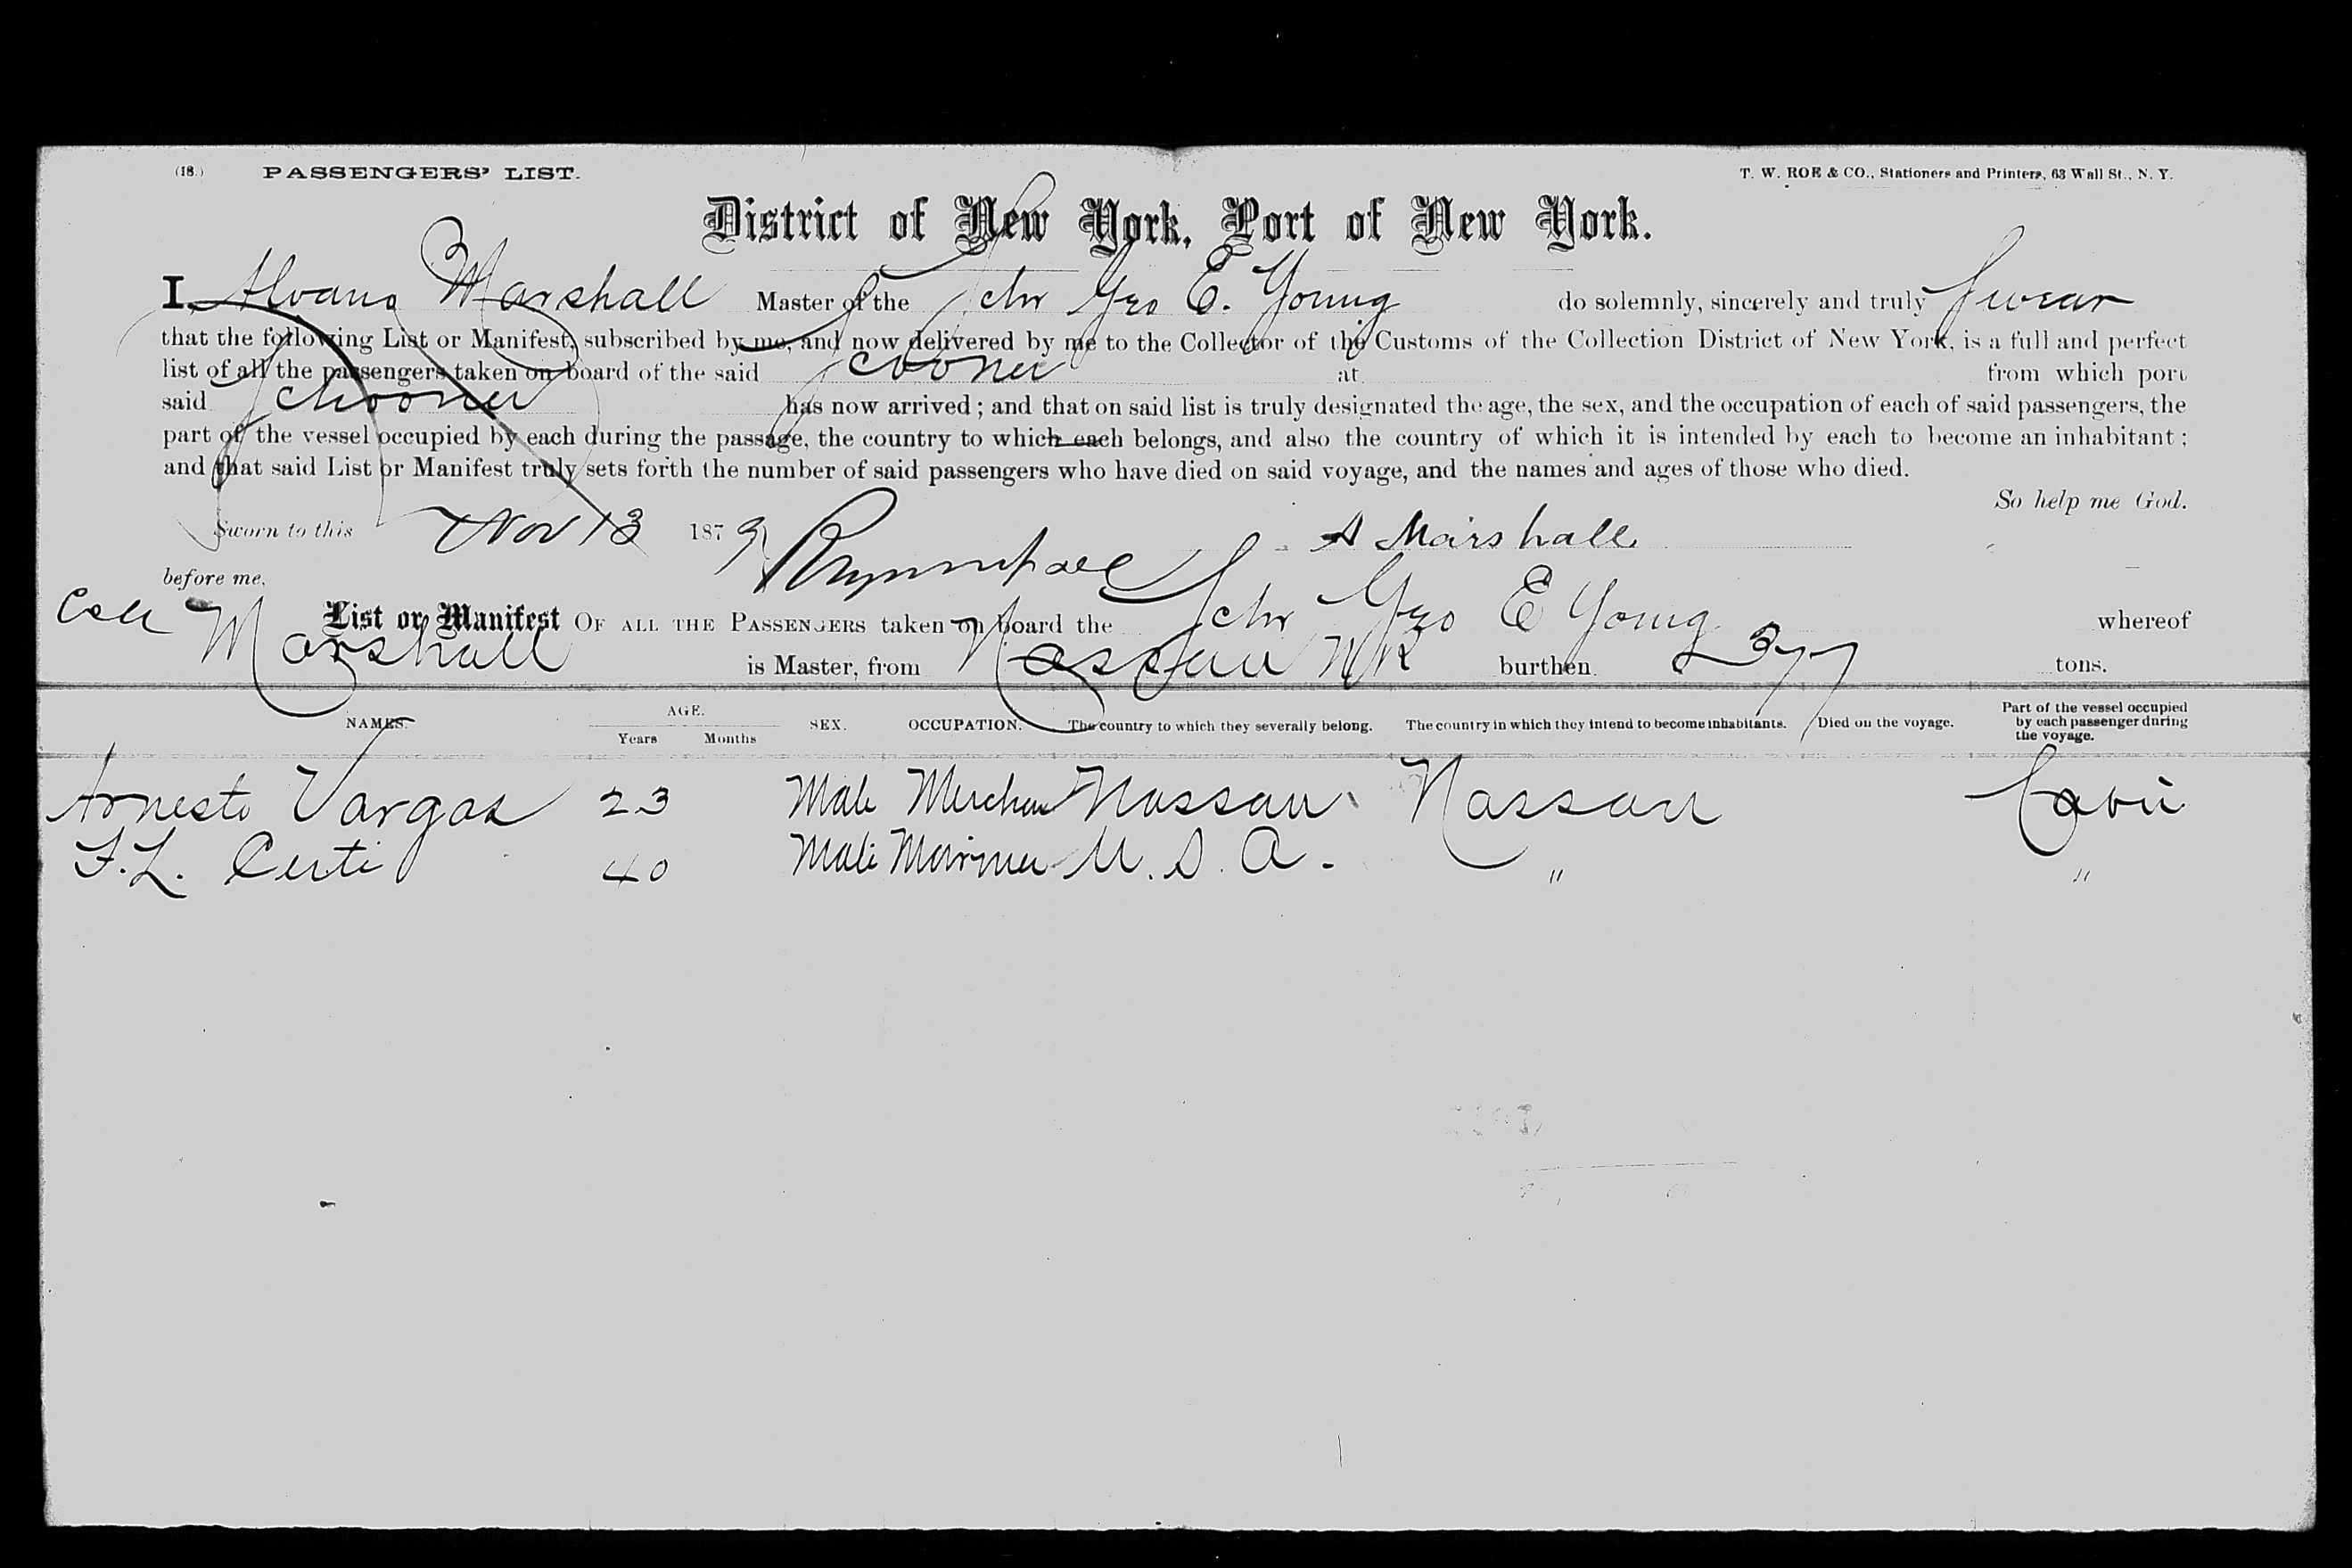 (18.) PASSENGERS' LIST. T. W. ROE & CO., Stationers and Printers, 63 Wall St., N. Y.
District of New York, Port of New York.
I, Alvano Marshall Master of the Schr Geo E. Young do solemnly, sincerely and truly Swear
that the following List or Manifest, subscribed by me, and now delivered by me to the Collector of the Customs of the Collection District of New York, is a full and perfect
list of all the passengers taken on board of the said Scooner at from which port
said Schooner has now arrived; and that on said list is truly designated the age, the sex, and the occupation of each of said passengers, the
part of the vessel occupied by each during the passage, the country to which each belongs, and also the country of which it is intended by each to become an inhabitant;
and that said List or Manifest truly sets forth the number of said passengers who have died on said voyage, and the names and ages of those who died.
So help me God.
Sworn to this Nov 13 1879 A Marshall
before me,
List or Manifest OF ALL THE PASSENGERS taken on board the Schr Geo E Young whereof
Marshall is Master, from Nassau burthen 377 tons.
NAMES. AGE. Years Months SEX. OCCUPATION. The country to which they severally belong. The country in which they intend to become inhabitants. Died on the voyage. Part of the vessel occupied by each passenger during the voyage.
Arnesto Vargas 23 Male Merchan Nassau Nassau Cabin
F. L. Certi 40 Male Mariner U. S. A. " "